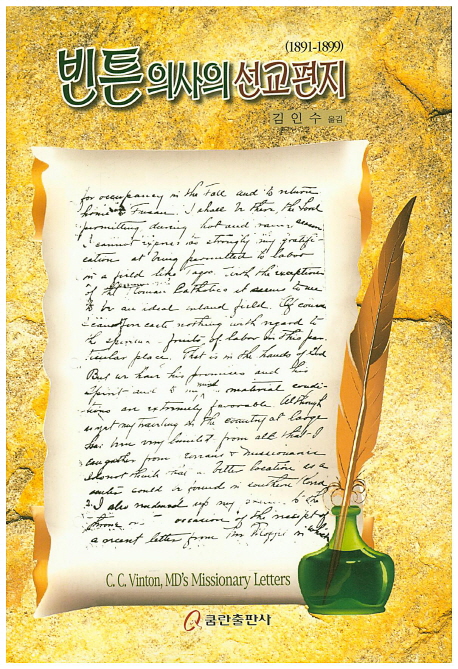 (1891-1899)
빈튼 의사의 선교편지
김인수 옮김
for occupancy in the Fall and to return
home to Fusan. I shall be there, the Lord
permitting during hot and rainy season
I cannot express too strongly my gratifi-
cation at being permitted to labor
in a field like this. With the exception
of the Roman Catholics it seems to me
to be an ideal inland field. Of course
I can forecaste nothing with regard to
the spiritual fruits of labor in this par-
ticular place. That is in the hands of God
But we have his promises and his
Spirit and the material condi-
tions are extremely favorable. Although
my in the country at large
has been very limited from all that I
can gather from Koreans & missionaries
I do not think that a better location as a
center could be found in southern Korea
I also my to the
on occasion of the receipt of
a recent letter from
C. C. Vinton, MD's Missionary Letters
쿰란출판사